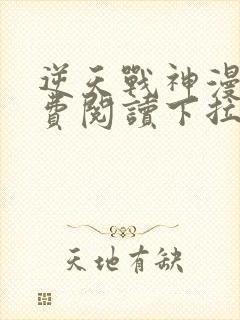 逆天戰神漫
費閱讀下拉
天地有缺